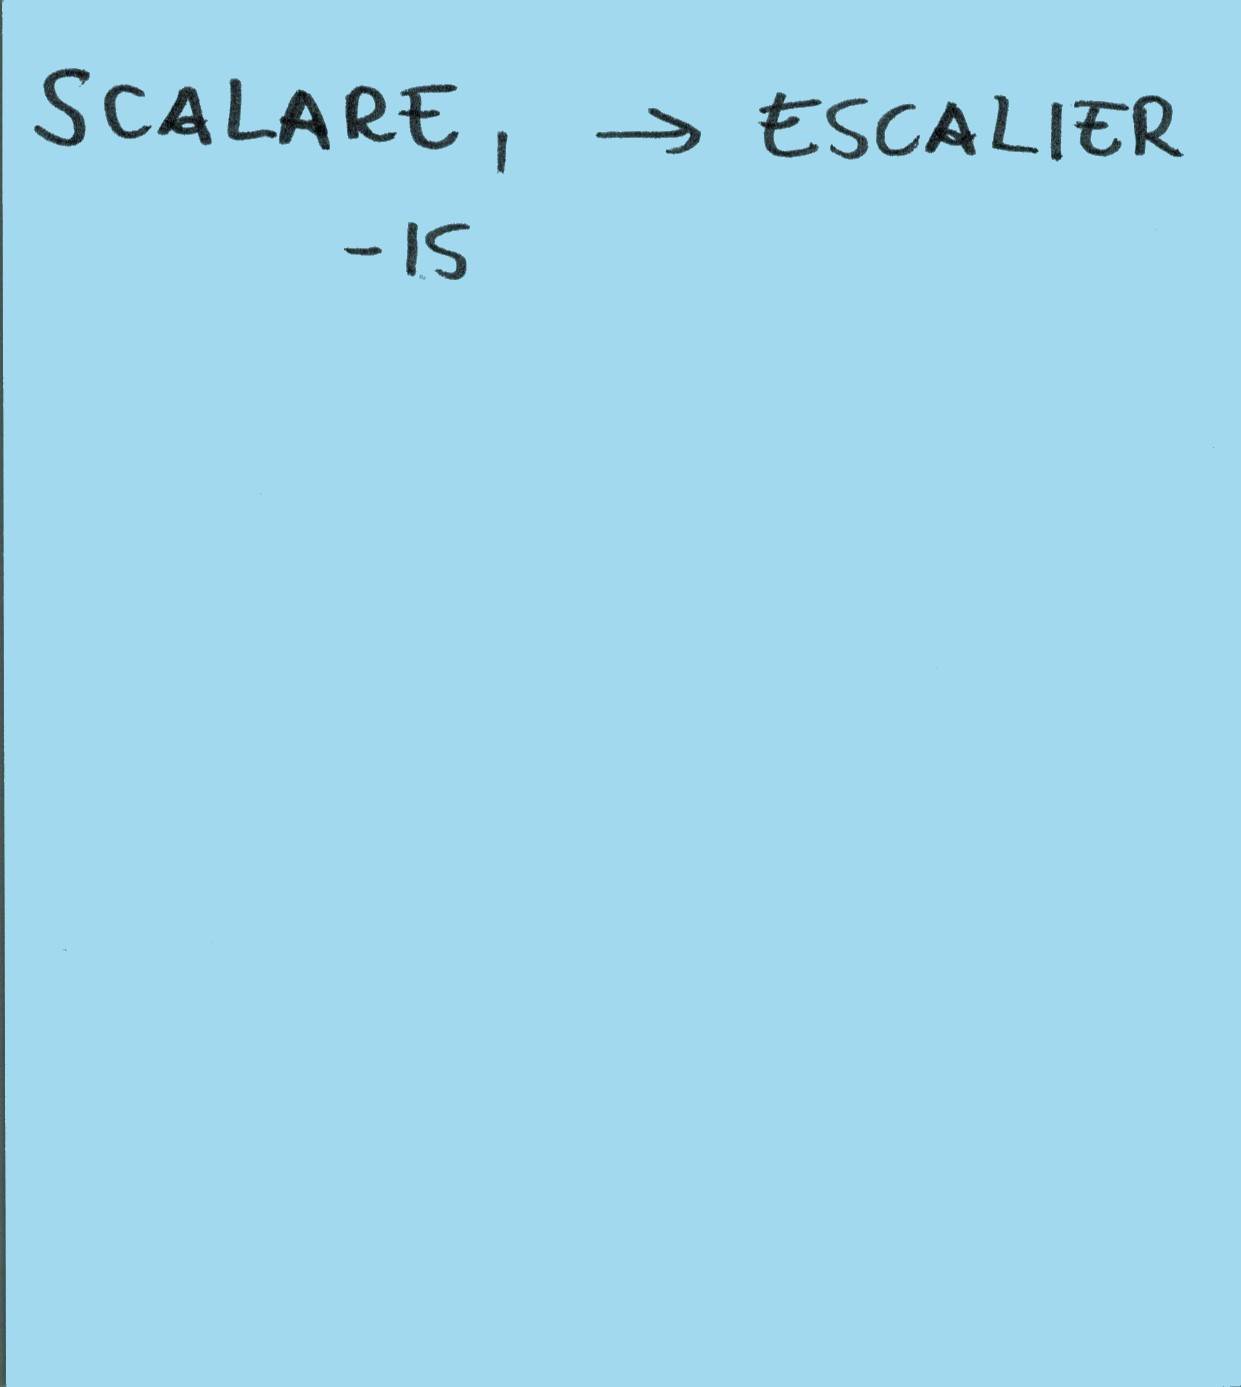 SCALARE, → ESCALIER
-IS